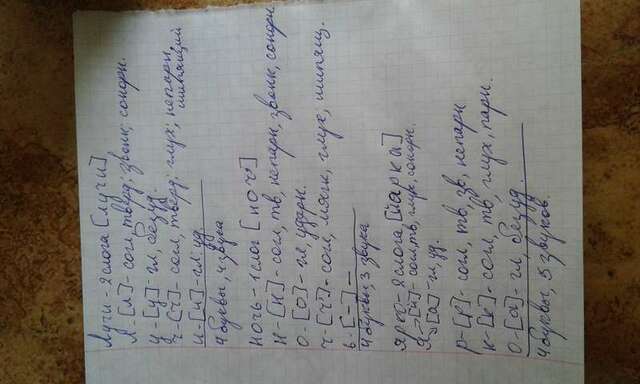 Лучи - 2 слога [лучи]
Л - [л] - согл, тверд; звонк; сонорн.
у - [у] - гл, безуд.
ч - [ч] - согл, тверд; глух; непарн, шипящий
и - [и] - гл. уд
4 буквы, 4 звука
ночь - 1 слог [ноч]
Н - [н] - согл, тв, непарн, звонк, сонорн
О - [о] - гл, ударн.
ч - [ч'] - согл, мягк, глух, шипящ.
ь - [-] -
4 буквы, 3 звука
ярко - 2 слога [йарка]
я [й] - согл, тв, глух, сонорн.
[а] - гл, уд.
р - [р] - согл, тв, зв, непарн
к - [к] - согл, тв, глух, парн.
О - [а] - гл, безуд.
4 буквы, 5 звуков.